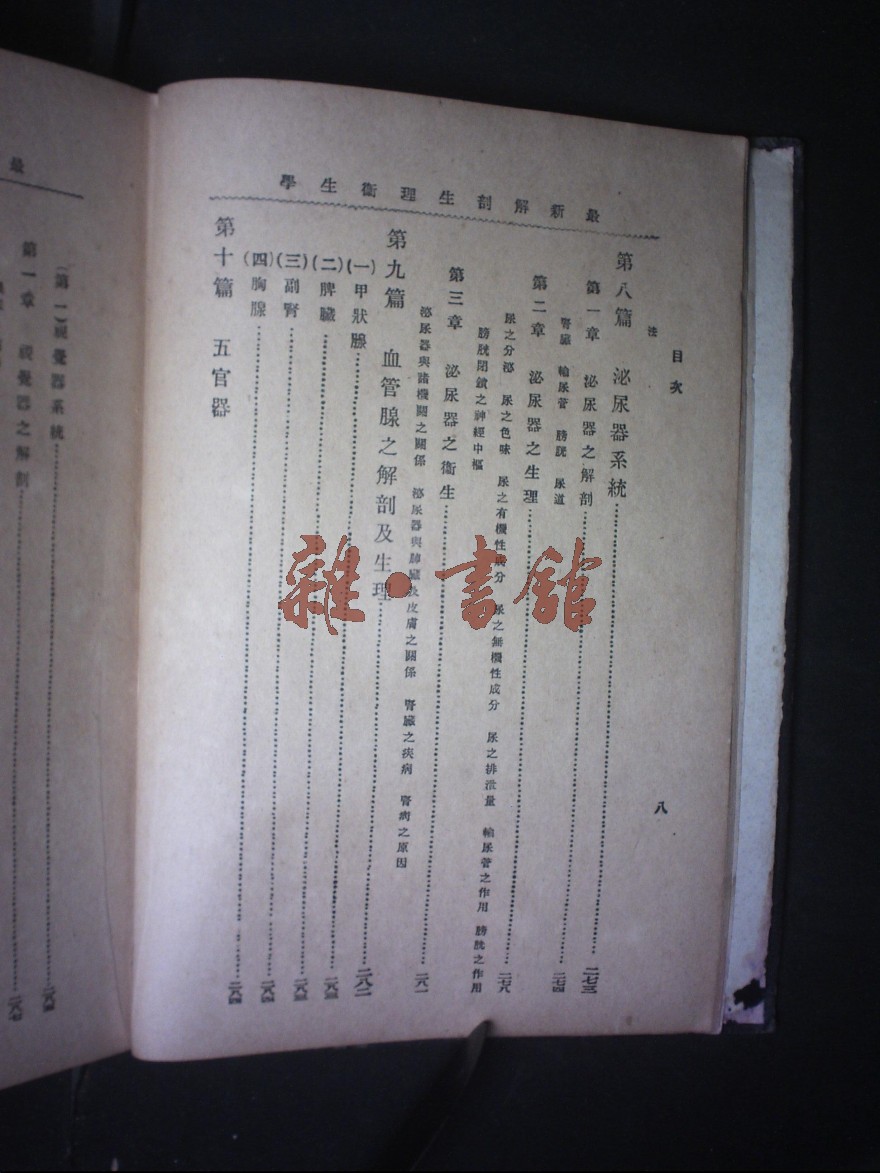 最新解剖生理衞生學
目次
八
法
第八篇 泌尿器系統……二七三
第一章 泌尿器之解剖……二七四
腎臟 輸尿管 膀胱 尿道
第二章 泌尿器之生理……二七八
尿之分泌 尿之色味 尿之有機性成分 尿之無機性成分 尿之排泄量 輸尿管之作用 膀胱之作用
膀胱閉鎖之神經中樞
第三章 泌尿器之衞生……二八一
泌尿器與諸機關之關係 泌尿器與肺臟及皮膚之關係 腎臟之疾病 腎病之原因
第九篇 血管腺之解剖及生理……二八二
(一)甲狀腺……二八三
(二)脾臟……二八三
(三)副腎……二八四
(四)胸腺……二八四
第十篇 五官器
最
(第一)視覺器系統
第一章 視覺器之解剖
雜·書舘